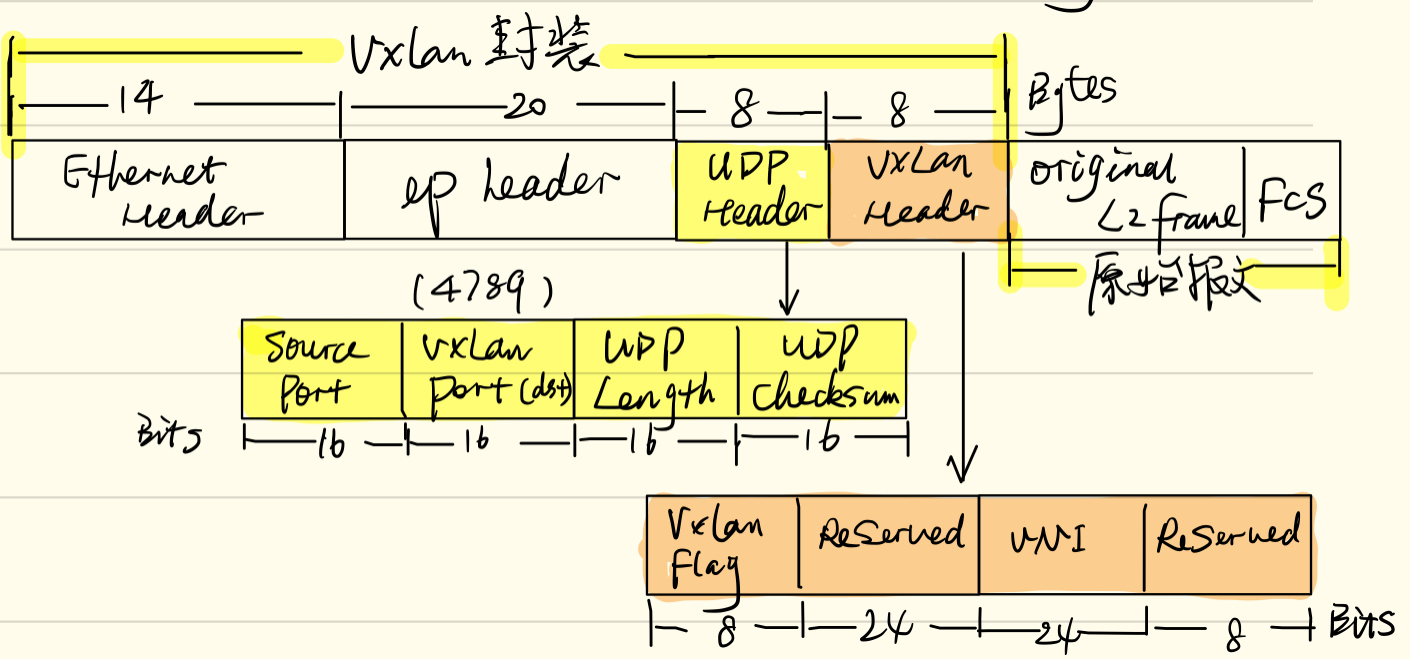 Vxlan 封装
14 20 8 8 Bytes
Ethernet Header
ep header
UDP Header
VxLan Header
original L2 frame
FCS
原始报文
(4789)
Source Port
VxLan port (dst)
UDP Length
UDP Checksum
Bits 16 16 16 16
VxLan Flag
Reserved
VNI
Reserved
8 24 24 8 Bits